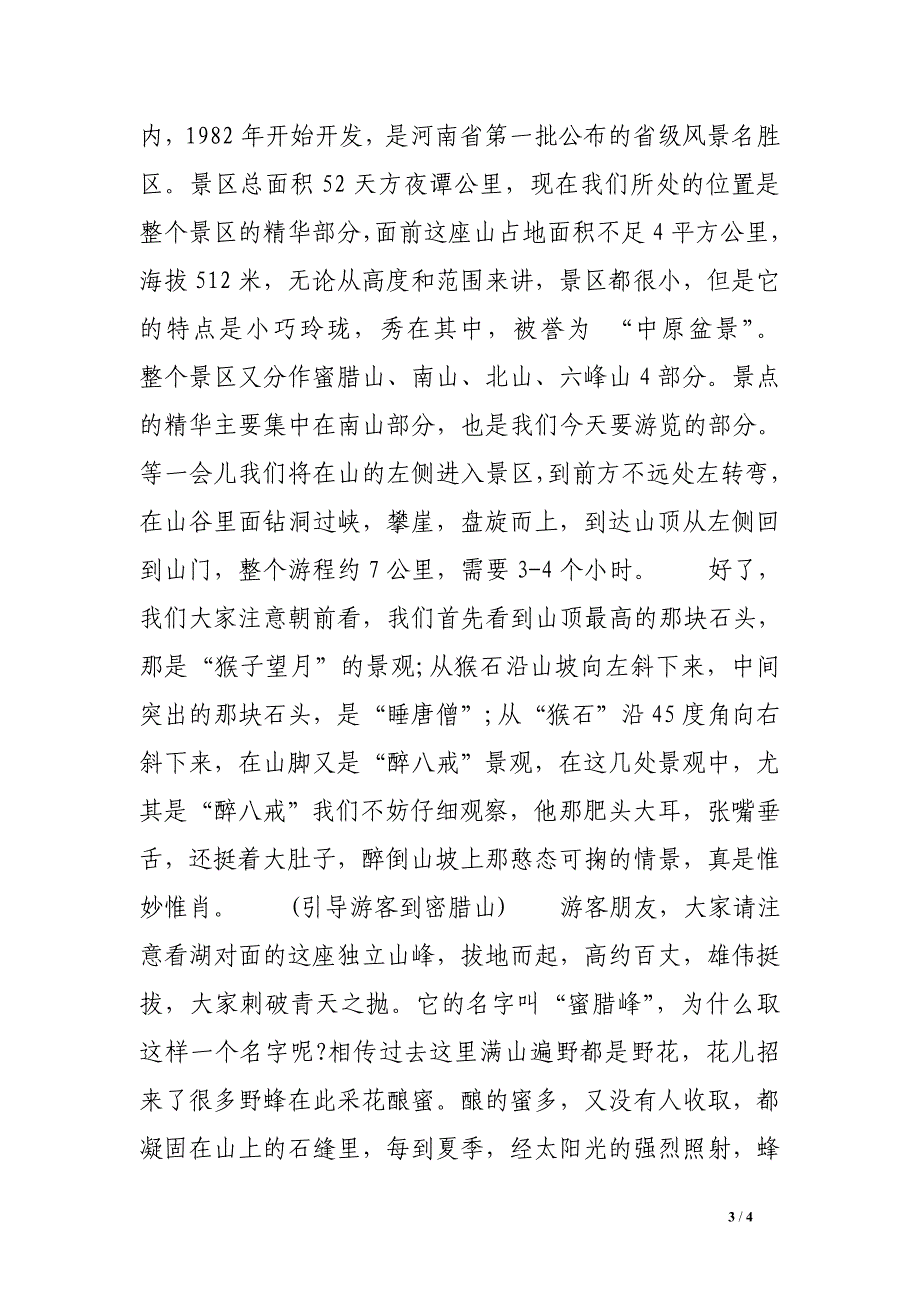 内，1982 年开始开发，是河南省第一批公布的省级风景名胜
区。景区总面积 52 天方夜谭公里，现在我们所处的位置是
整个景区的精华部分，面前这座山占地面积不足 4 平方公里，
海拔 512 米，无论从高度和范围来讲，景区都很小，但是它
的特点是小巧玲珑，秀在其中，被誉为　“中原盆景”。
整个景区又分作蜜腊山、南山、北山、六峰山 4 部分。景点
的精华主要集中在南山部分，也是我们今天要游览的部分。
等一会儿我们将在山的左侧进入景区，到前方不远处左转弯，
在山谷里面钻洞过峡，攀崖，盘旋而上，到达山顶从左侧回
到山门，整个游程约 7 公里，需要 3-4 个小时。　　好了，
我们大家注意朝前看，我们首先看到山顶最高的那块石头，
那是“猴子望月”的景观；从猴石沿山坡向左斜下来，中间
突出的那块石头，是“睡唐僧”；从“猴石”沿 45 度角向右
斜下来，在山脚又是“醉八戒”景观，在这几处景观中，尤
其是“醉八戒”我们不妨仔细观察，他那肥头大耳，张嘴垂
舌，还挺着大肚子，醉倒山坡上那憨态可掬的情景，真是惟
妙惟肖。　　(引导游客到密腊山)　　游客朋友，大家请注
意看湖对面的这座独立山峰，拔地而起，高约百丈，雄伟挺
拔，大家刺破青天之抛。它的名字叫“蜜腊峰”，为什么取
这样一个名字呢?相传过去这里满山遍野都是野花，花儿招
来了很多野蜂在此采花酿蜜。酿的蜜多，又没有人收取，都
凝固在山上的石缝里，每到夏季，经太阳光的强烈照射，蜂
3 / 4